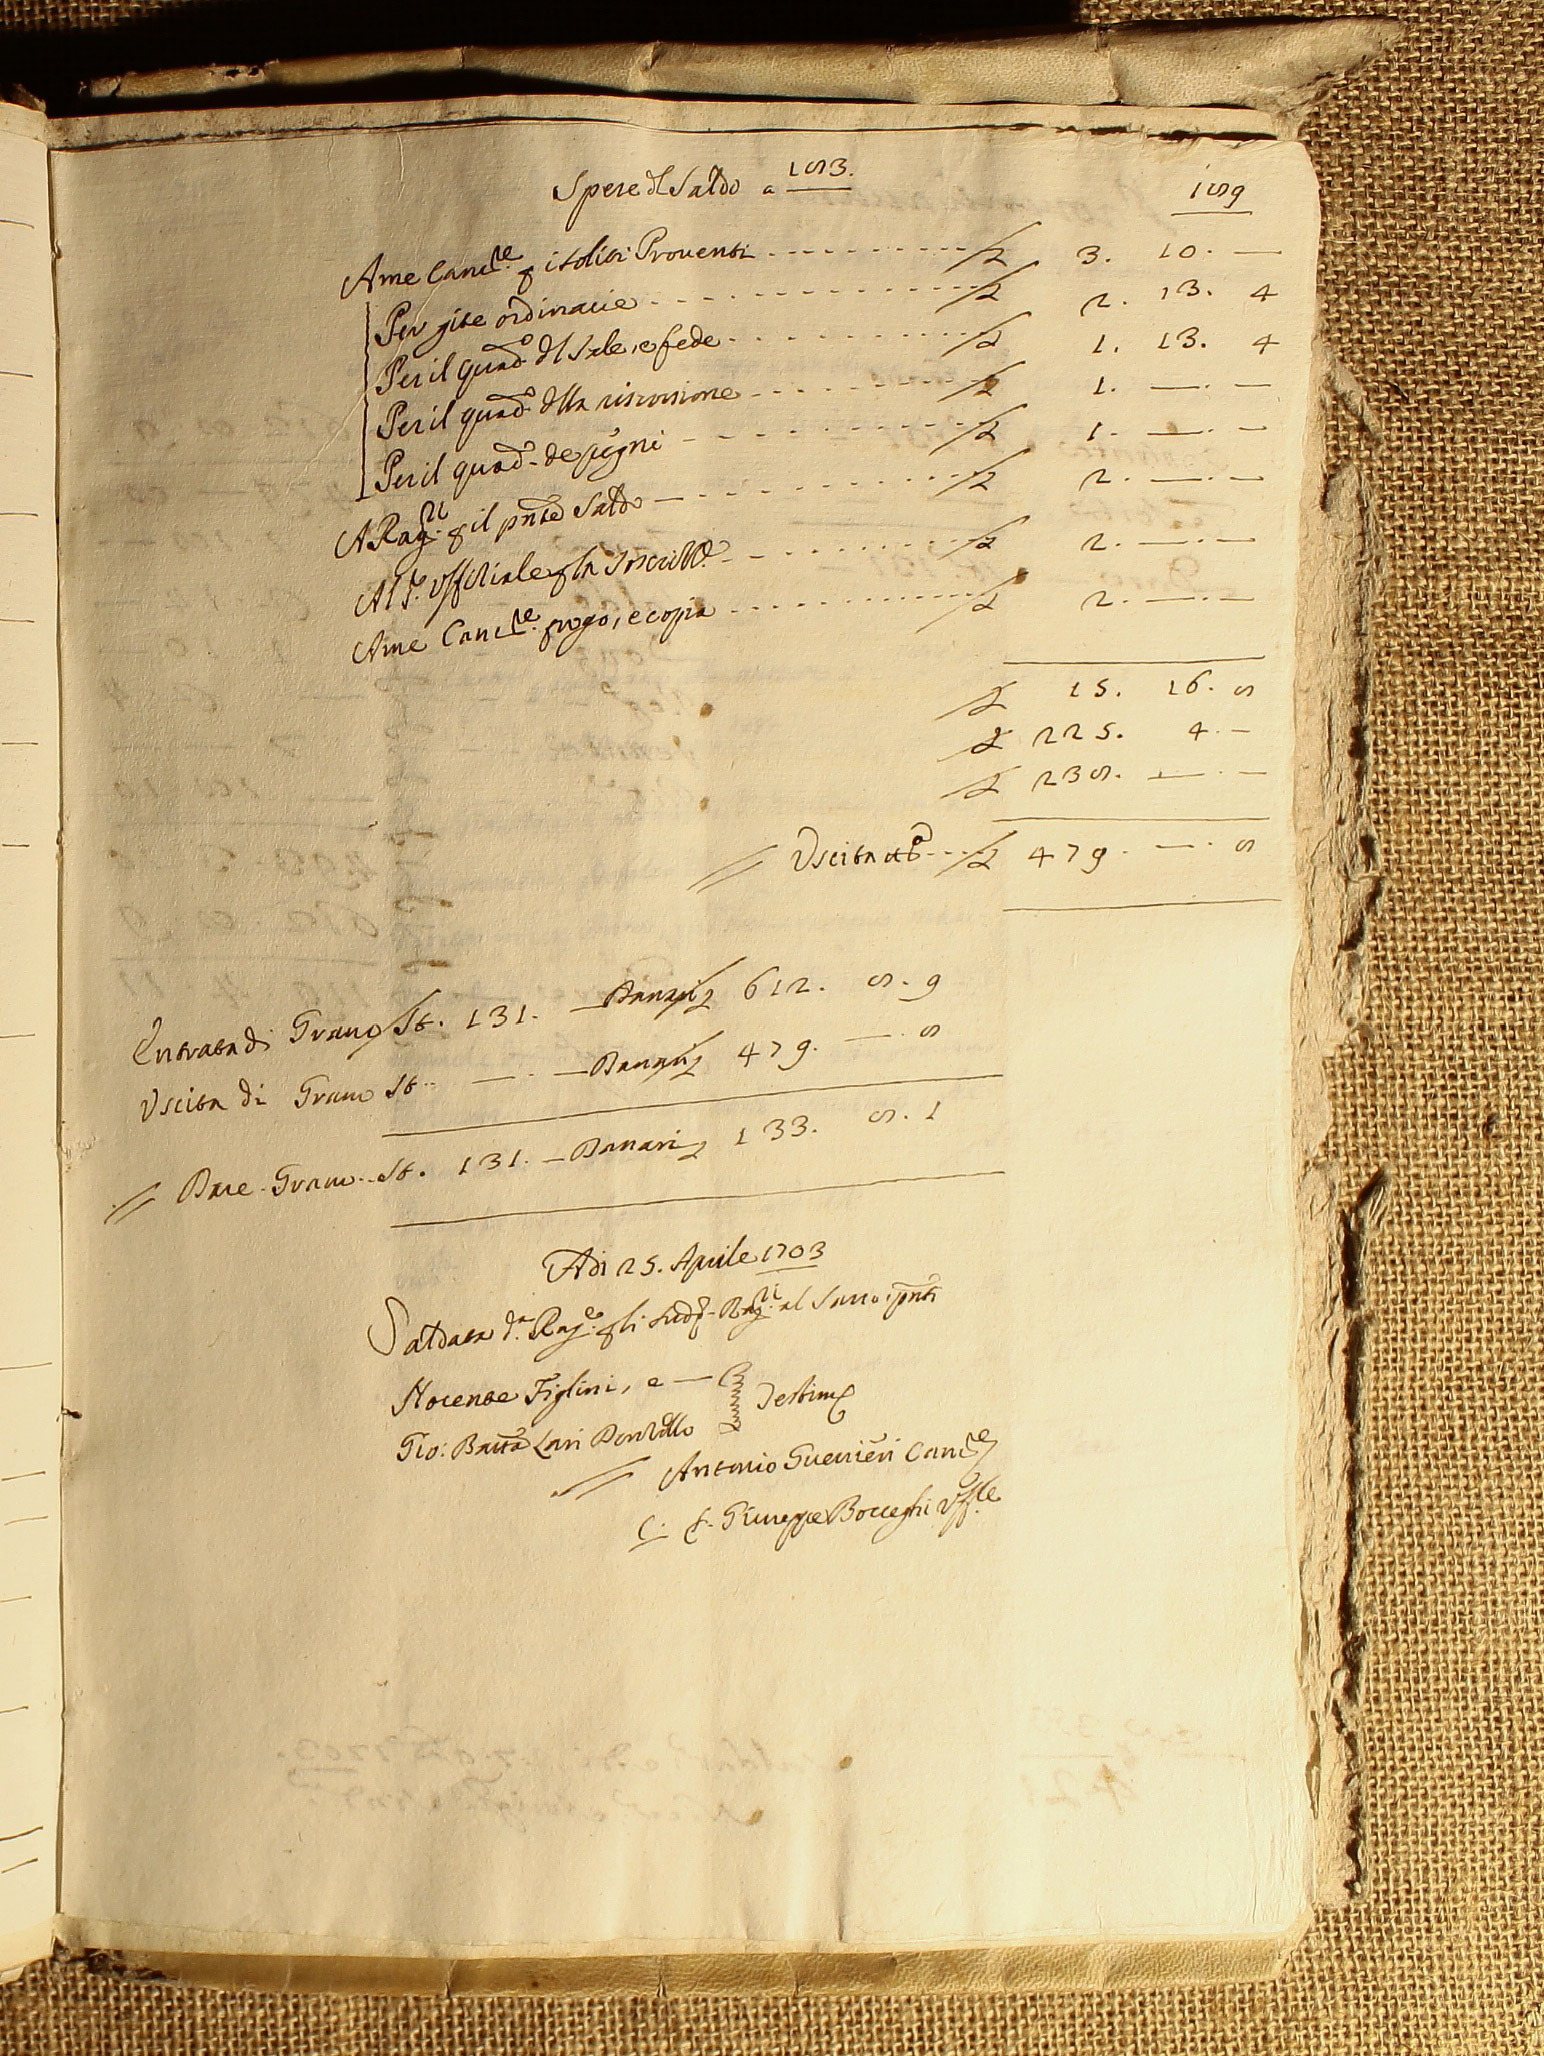 Spese dl Saldo a 183. 189
A me Canc.re p i soliti Proventi £ 3. 10. —
Per gite ordinarie £ 2. 13. 4
Per il quad.o dl sale, e fede £ 1. 13. 4
Per il quad.o dlla riscossione £ 1. —. —
Per il quad.o de pegni £ 1. —. —
A Rag.ri p il pnte Saldo — £ 2. —. —
Al S.r Uffitiale p la £ 2. —. —
A me Canc.re p rogo, e copia £ 2. —. —
£ 15. 16. 8
£ 225. 4. —
£ 238. —. —
// Uscita £ 479. —. 8
Entrata di Grano St. 131. — Danari £ 612. 8. 9
Uscita di Grano St. — — Danari £ 479. — 8
// Dare Grano St. 131. — Danari £ 133. 8. 1
Adi 25. Aprile 1703
Saldata d.a Rag.e p li sud.i Rag.ri al Sarro, pnti
Horenze Figlini, e —
Gio: Batta Lari Testimj
// Antonio Guerrieri Canc.re
C. S. Giuseppe Uff.le